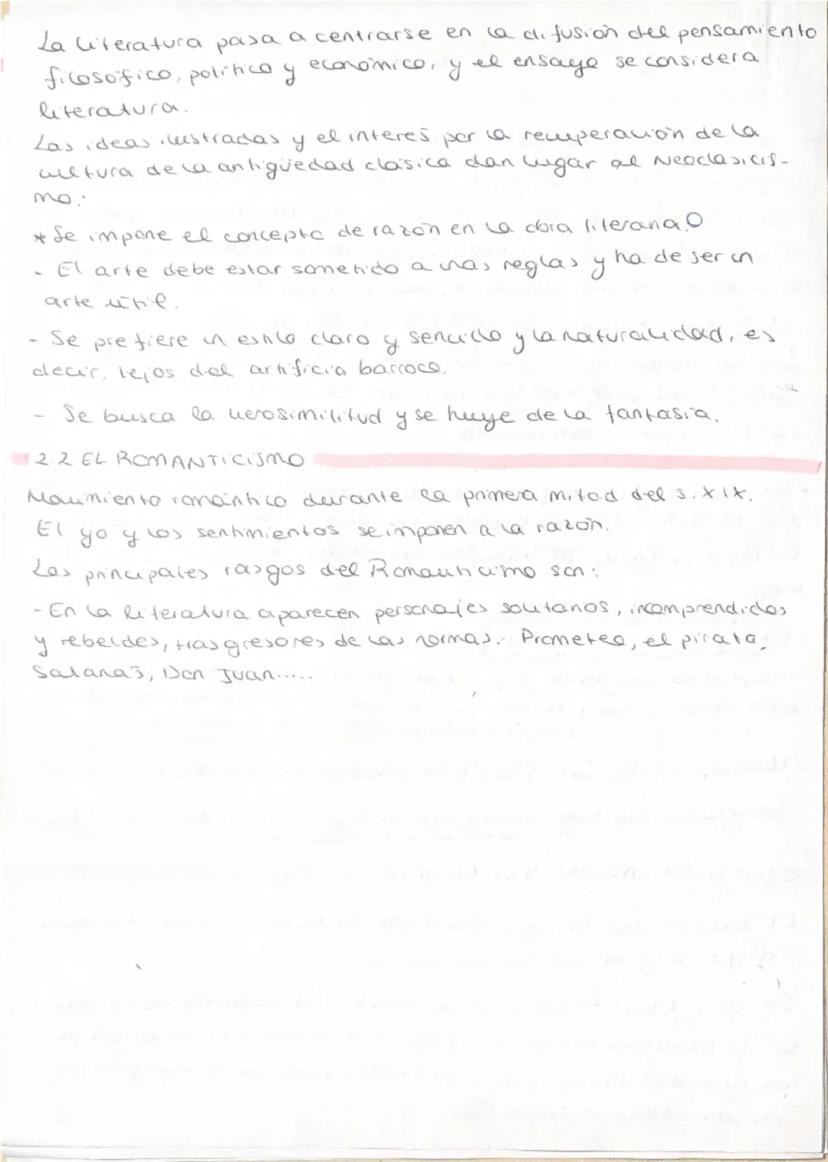 La literatura pasa a centrarse en la difusión del pensamiento
filosófico, político y económico, y el ensayo se considera
literatura.
Las ideas ilustradas y el interés por la recuperación de la
cultura de la antigüedad clásica dan lugar al Neoclasicis-
mo:
* Se impone el concepto de razón en la obra literaria.
- El arte debe estar sometido a unas reglas y ha de ser un
arte útil.
- Se prefiere un estilo claro y sencillo y la naturalidad, es
decir, lejos del artificio barroco.
- Se busca la verosimilitud y se huye de la fantasía.
2.2 EL ROMANTICISMO
Movimiento romántico durante la primera mitad del s. XIX.
El yo y los sentimientos se imponen a la razón.
Los principales rasgos del Romanticismo son:
- En la literatura aparecen personajes solitarios, incomprendidos
y rebeldes, trasgresores de las normas.. Prometeo, el pirata,
Satanás, Don Juan.....